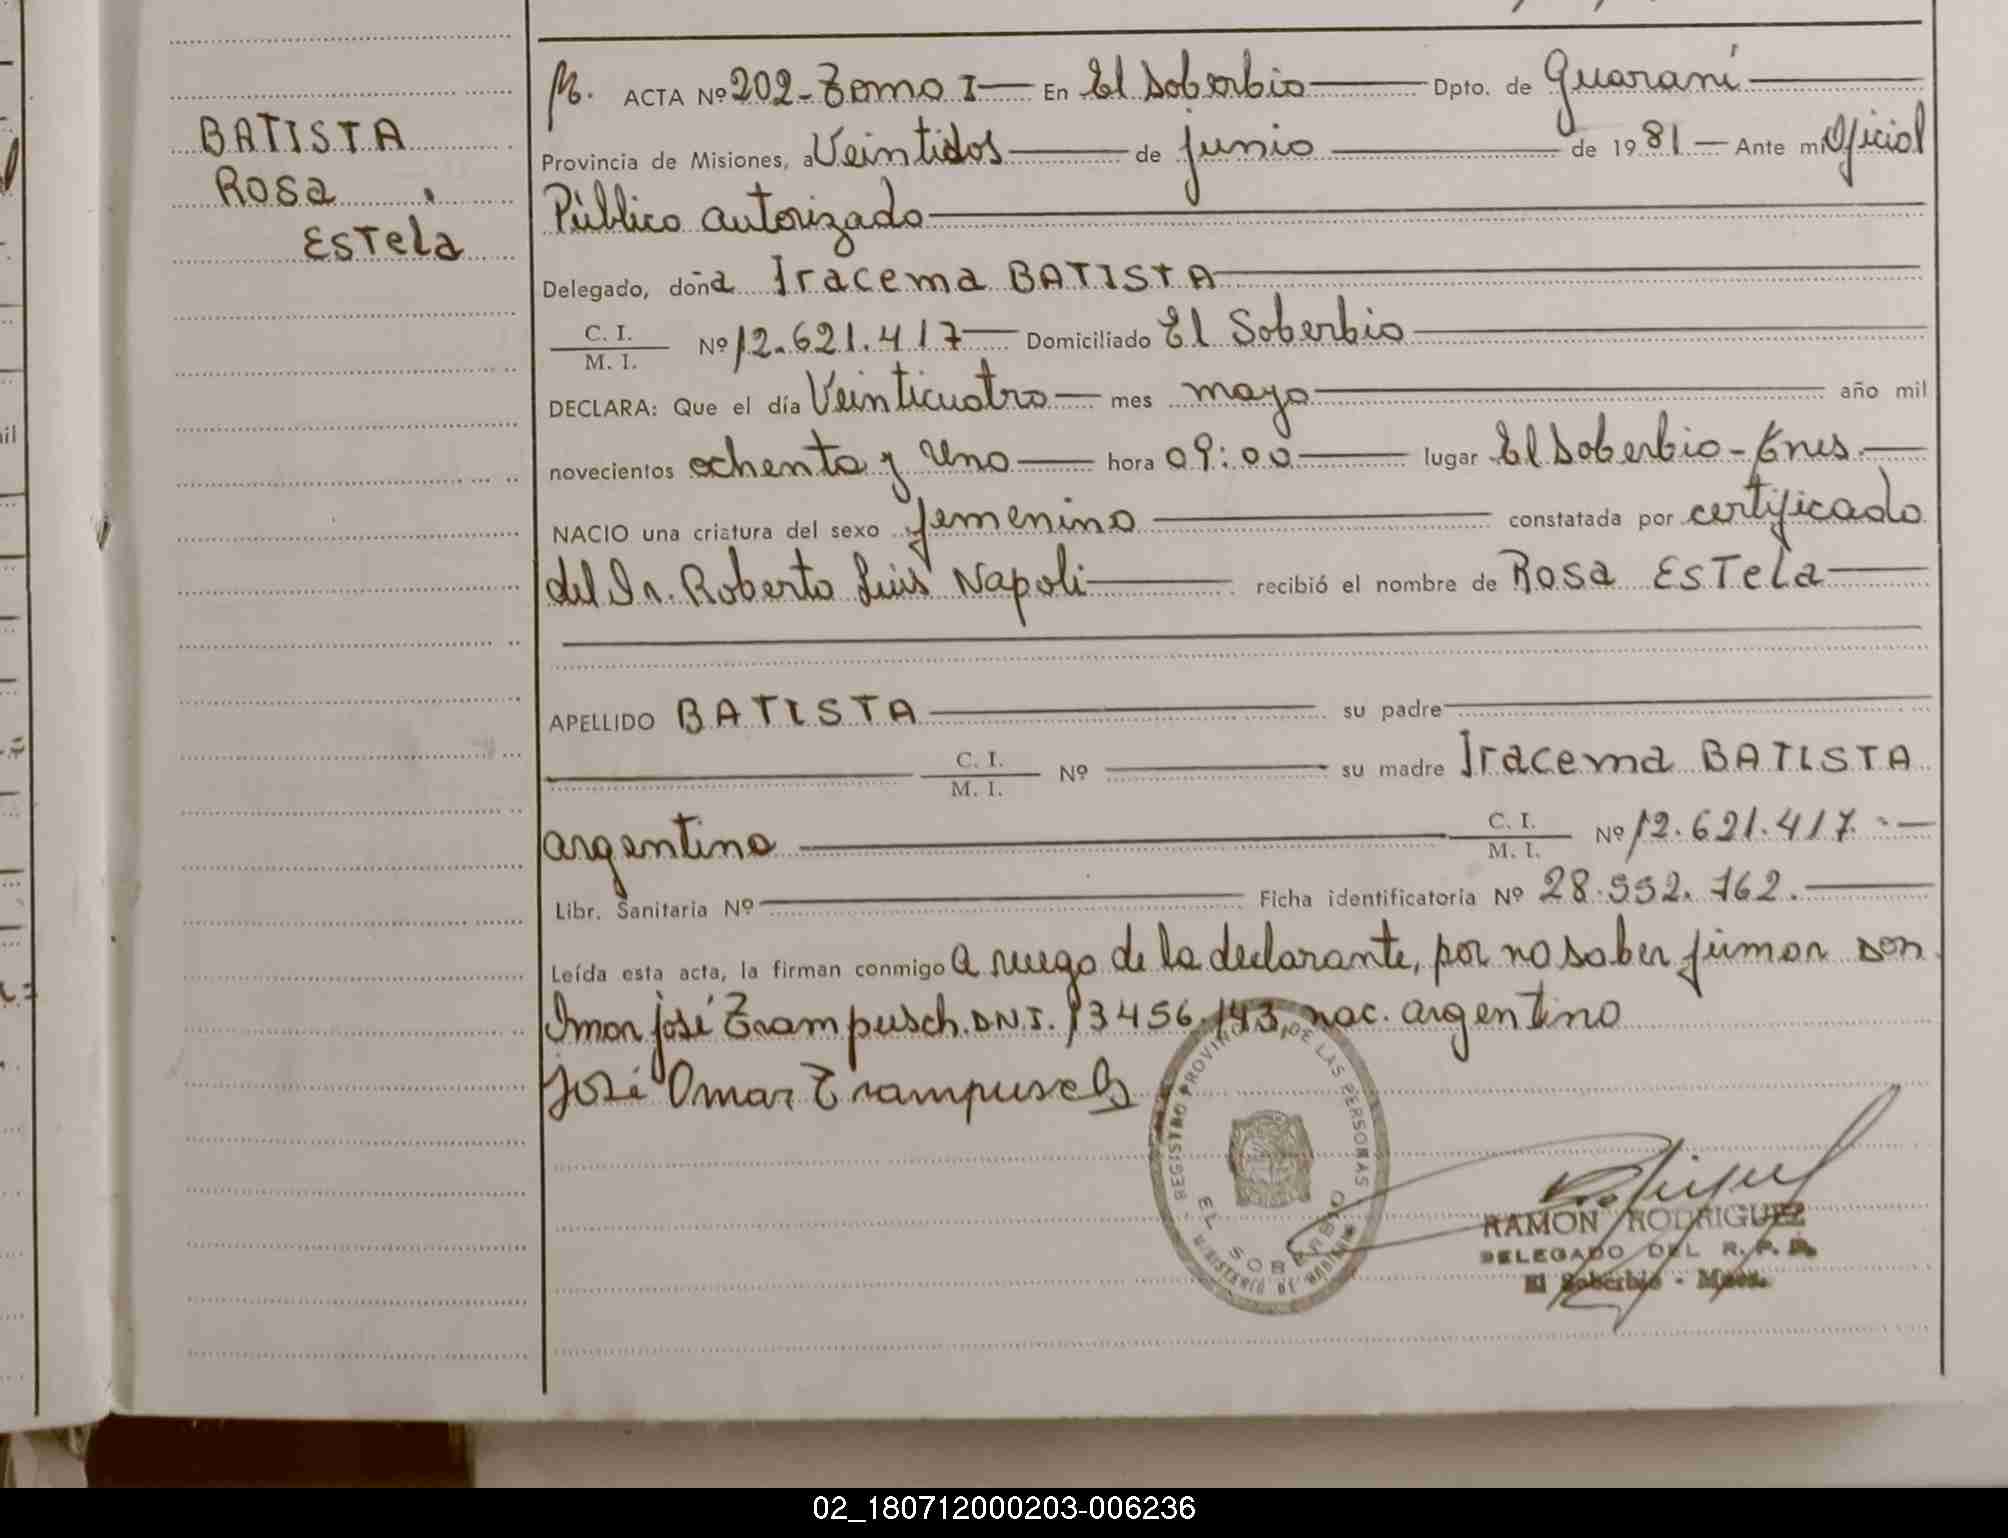 BATISTA
Rosa
Estela
ACTA Nº 202-Tomo I En El Soberbio Dpto. de Guaraní
Provincia de Misiones, a Veintidos de junio de 1981 Ante mi Oficial
Público autorizado
Delegado, doña Iracema BATISTA
C. I.
M. I.
Nº 12.621.417 Domiciliado El Soberbio
DECLARA: Que el día Veinticuatro mes mayo año mil
novecientos ochenta y uno hora 09:00 lugar El Soberbio-Mnes
NACIO una criatura del sexo femenino constatada por certificado
del Dr. Roberto Luis Napoli recibió el nombre de Rosa Estela
APELLIDO BATISTA su padre
C. I.
M. I.
Nº su madre Iracema BATISTA
argentina
C. I.
M. I.
Nº 12.621.417.-
Libr. Sanitaria Nº Ficha identificatoria Nº 28.552.762.
Leída esta acta, la firman conmigo A ruego de la declarante, por no saber firmar don
Omar josé Trampusch. DNI. 13456.143, nac. argentino
José Omar Trampusch
REGISTRO PROVINCIAL DE LAS PERSONAS
EL SOBERBIO
MINISTERIO DE
RAMON RODRIGUEZ
DELEGADO DEL R. P. P.
El Soberbio - Mnes.
02_180712000203-006236